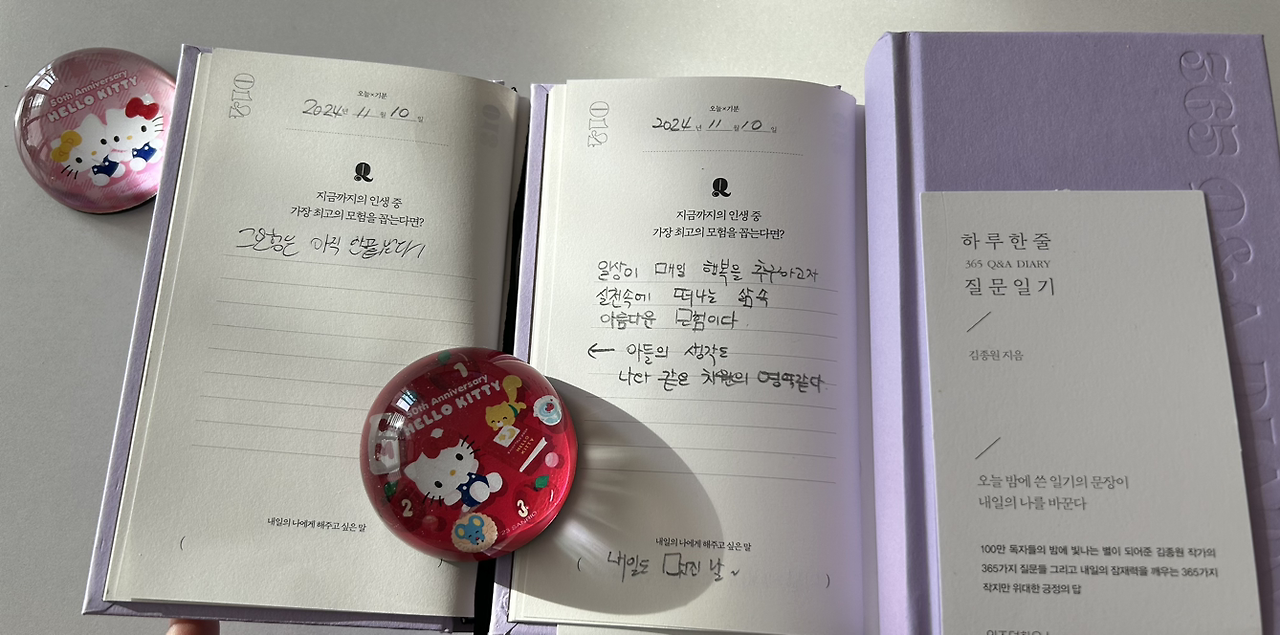 50th Anniversary
HELLO KITTY
오늘×기분
2024년 11월 10일
Q
지금까지의 인생 중
가장 최고의 모험을 꼽는다면?
모험은 아직 안끝났다!
내일의 나에게 해주고 싶은 말
(
)
50th Anniversary
HELLO KITTY
1
2
3
오늘×기분
2024년 11월 10일
Q
지금까지의 인생 중
가장 최고의 모험을 꼽는다면?
일상이 매일 행복을 추구하고자
실전속에 떠나는 삶 속
아름다운 모험이다.
← 아들의 생각도
나와 같은 차원의 영역같다.
내일의 나에게 해주고 싶은 말
( 내일도 멋진 날~ )
365 Q&A DIA
하루 한 줄
365 Q&A DIARY
질문 일기
김종원 지음
오늘 밤에 쓴 일기의 문장이
내일의 나를 바꾼다
100만 독자들의 밤에 빛나는 별이 되어준 김종원 작가의
365가지 질문들 그리고 내일의 잠재력을 깨우는 365가지
작지만 위대한 긍정의 답